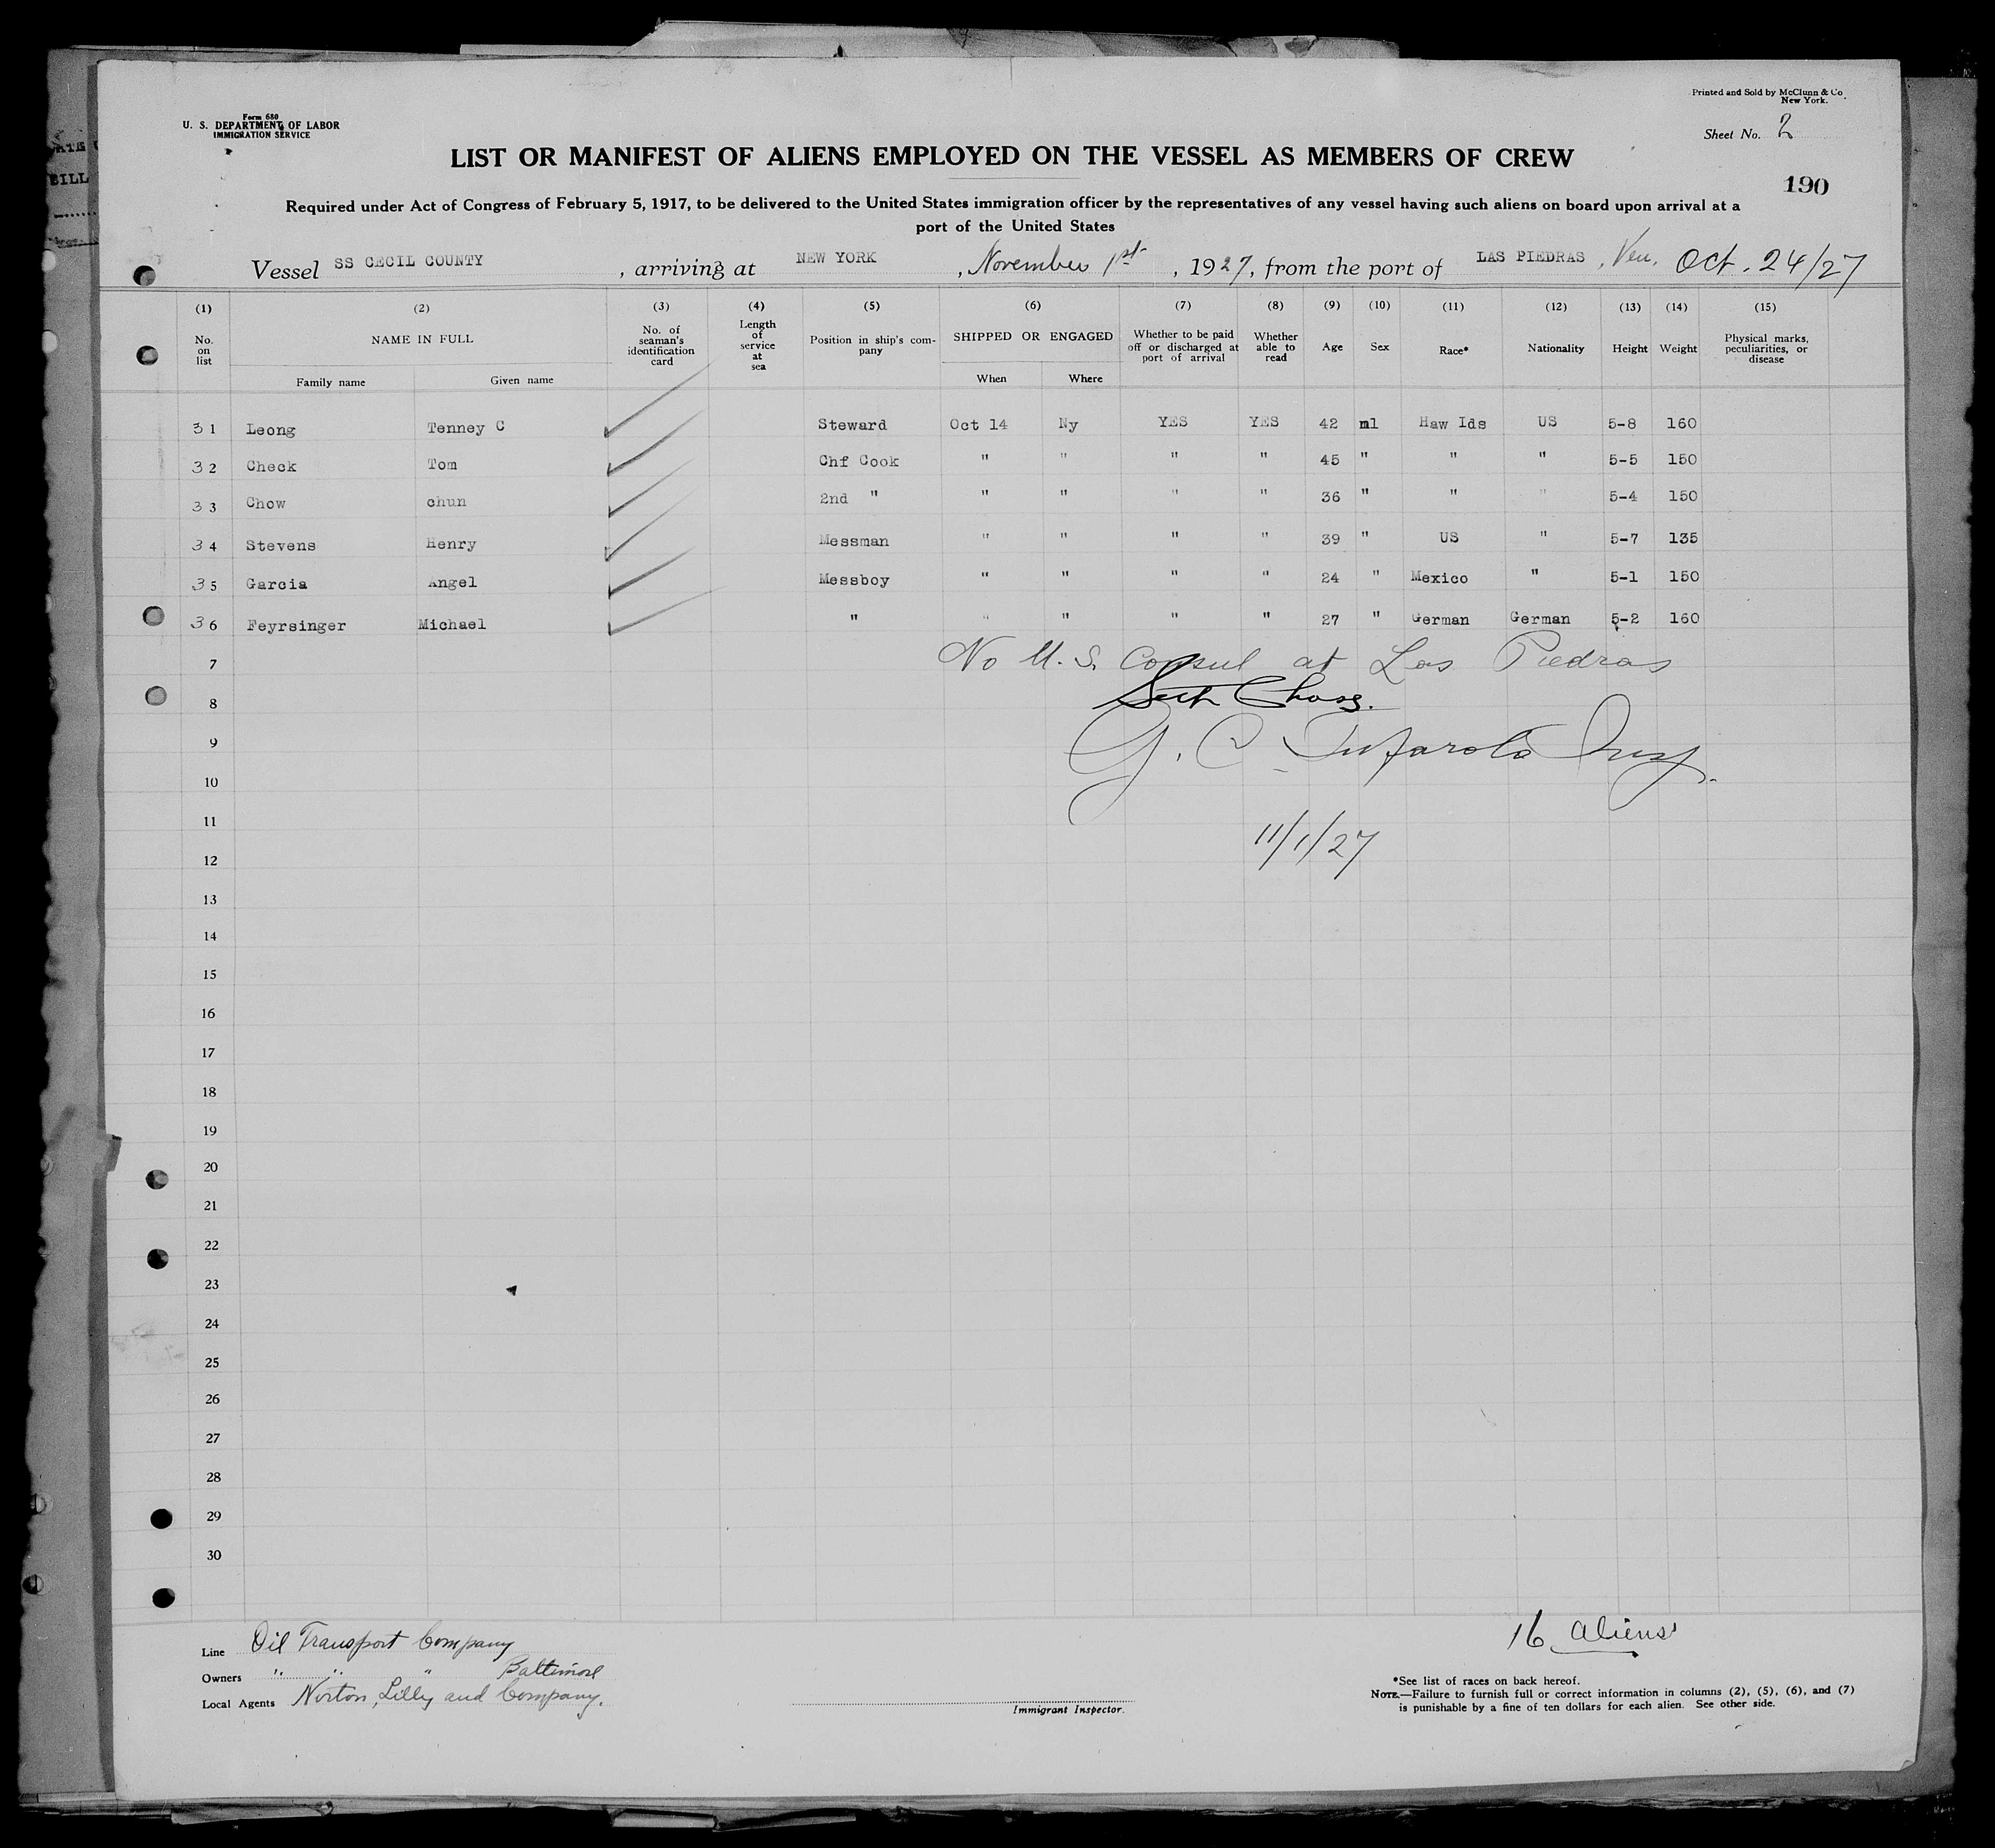 Form 680
U. S. DEPARTMENT OF LABOR
IMMIGRATION SERVICE
Printed and Sold by McClunn & Co
New York.
Sheet No. 2
LIST OR MANIFEST OF ALIENS EMPLOYED ON THE VESSEL AS MEMBERS OF CREW
190
Required under Act of Congress of February 5, 1917, to be delivered to the United States immigration officer by the representatives of any vessel having such aliens on board upon arrival at a
port of the United States
Vessel SS CECIL COUNTY, arriving at NEW YORK, November 1st, 1927, from the port of LAS PIEDRAS, Ven. Oct. 24/27
(1) (2) (3) (4) (5) (6) (7) (8) (9) (10) (11) (12) (13) (14) (15)
No. on list NAME IN FULL Family name Given name No. of seaman's identification card Length of service at sea Position in ship's company SHIPPED OR ENGAGED When Where Whether to be paid off or discharged at port of arrival Whether able to read Age Sex Race* Nationality Height Weight Physical marks, peculiarities, or disease
31 Leong Tenney C Steward Oct 14 Ny YES YES 42 ml Haw Ids US 5-8 160
32 Check Tom Chf Cook " " " " 45 " " " 5-5 150
33 Chow chun 2nd " " " " " 36 " " " 5-4 150
34 Stevens Henry Messman " " " " 39 " US " 5-7 135
35 Garcia Angel Messboy " " " " 24 " Mexico " 5-1 150
36 Feyrsinger Michael " " " " " 27 " German German 5-2 160
7 No U.S. Consul at Las Piedras
8 Seth Chase.
9
10
11 11/1/27
12
13
14
15
16
17
18
19
20
21
22
23
24
25
26
27
28
29
30
16 aliens
Line Oil Transport Company
Owners " " " Baltimore
Local Agents Norton, Lilly and Company.
Immigrant Inspector.
*See list of races on back hereof.
NOTE.—Failure to furnish full or correct information in columns (2), (5), (6), and (7)
is punishable by a fine of ten dollars for each alien. See other side.